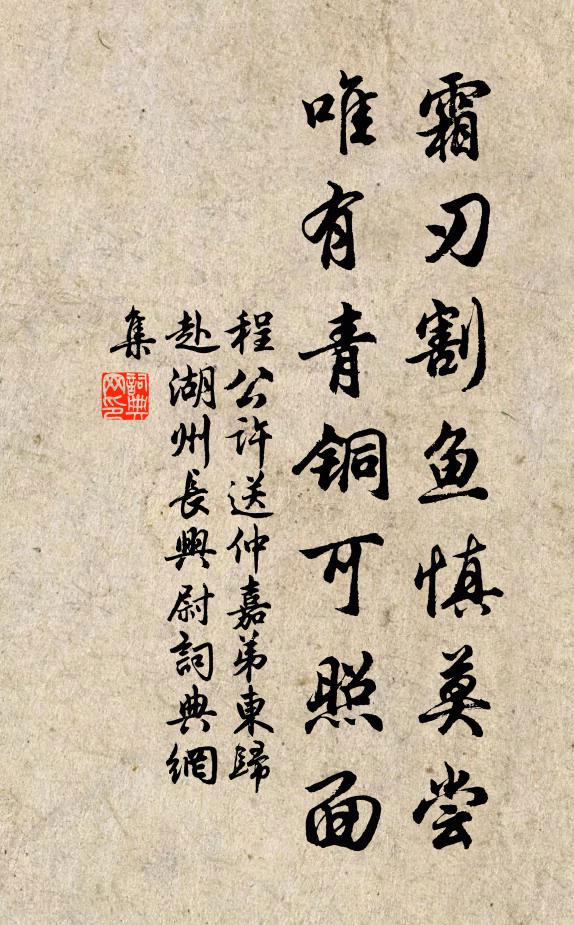 霜刃割鱼慎莫尝
唯有青铜可照面
程公许送仲嘉弟東歸
赴湖州長興尉詞典網
集
詞典网印